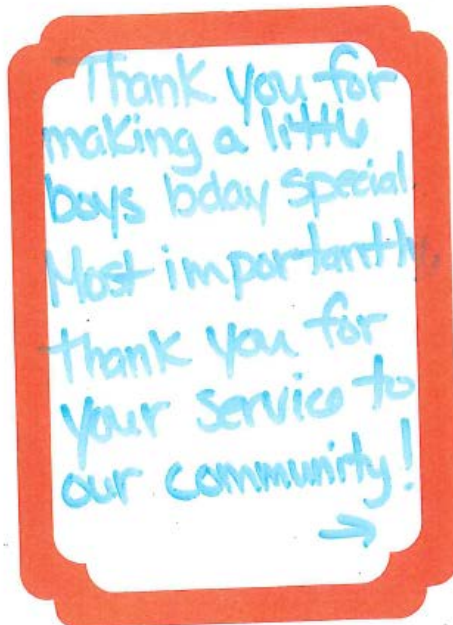 Thank you for
making a little
boys bday special
Most importantly,
thank you for
your service to
our community!
→